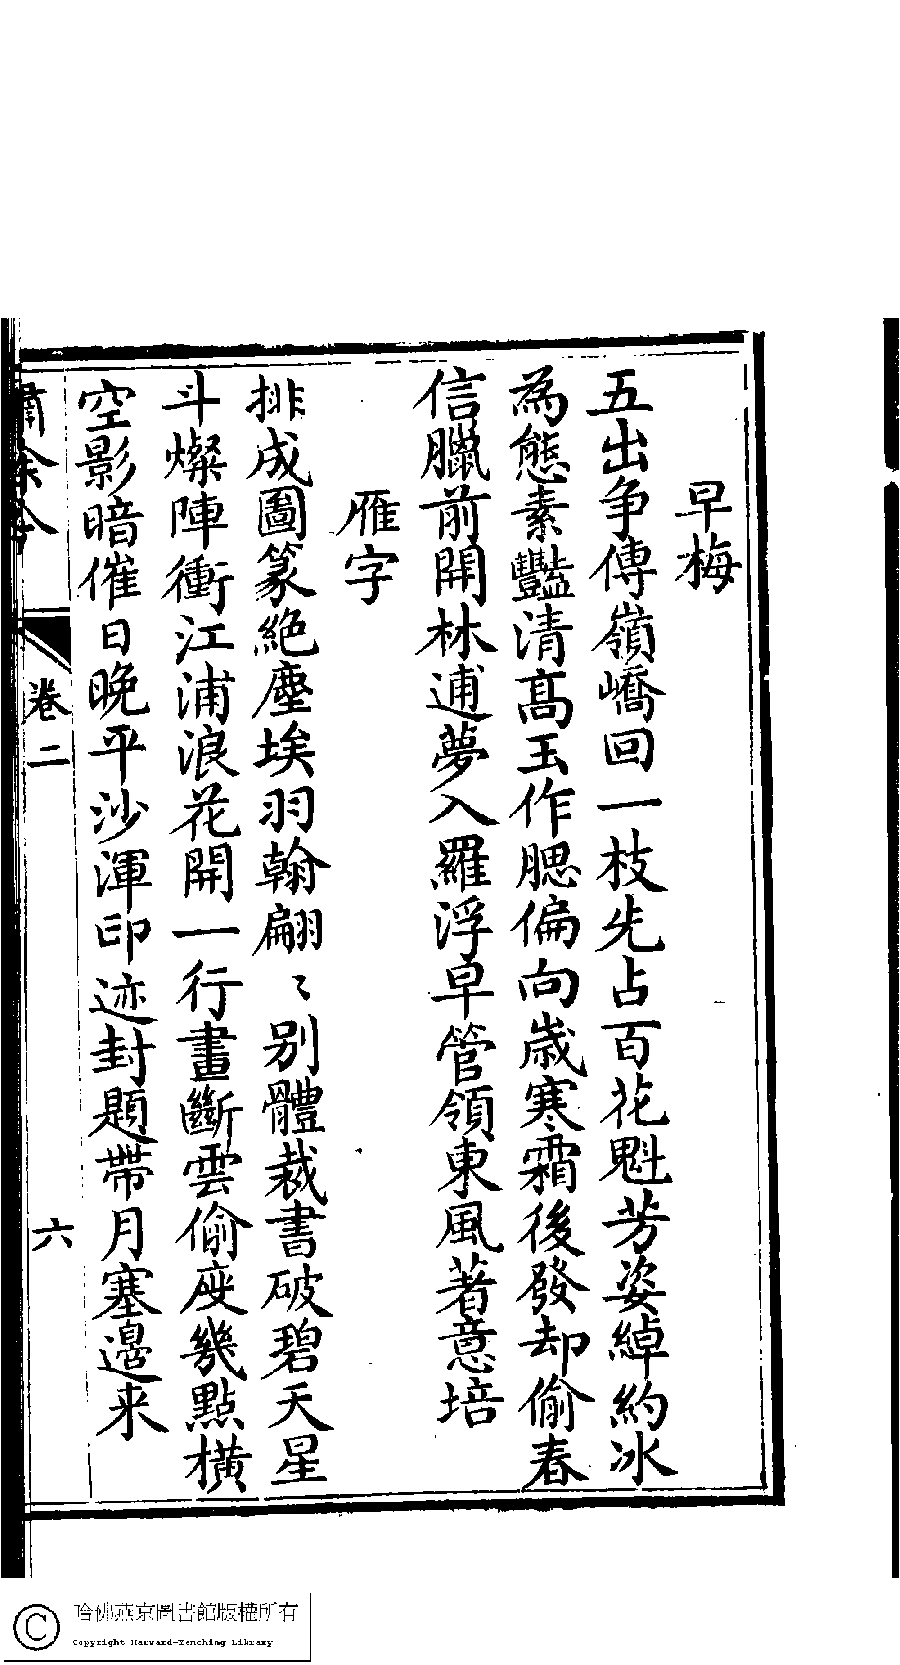 早梅
五出争傳嶺嶠回一枝先占百花魁芳姿綽約冰
為態素豔清髙玉作腮偏向歲寒霜後發却偷春
信臘前開林逋夢入羅浮早管領東風著意培
雁字
排成圖篆絕塵埃羽翰翩〻别體裁書破碧天星
斗燦陣衝江浦浪花開一行畫斷雲偷度幾點橫
空影暗催日晚平沙渾印迹封題帶月塞邉来
卷二
六
哈佛燕京圖書館版權所有
Copyright Harvard-Yenching Library